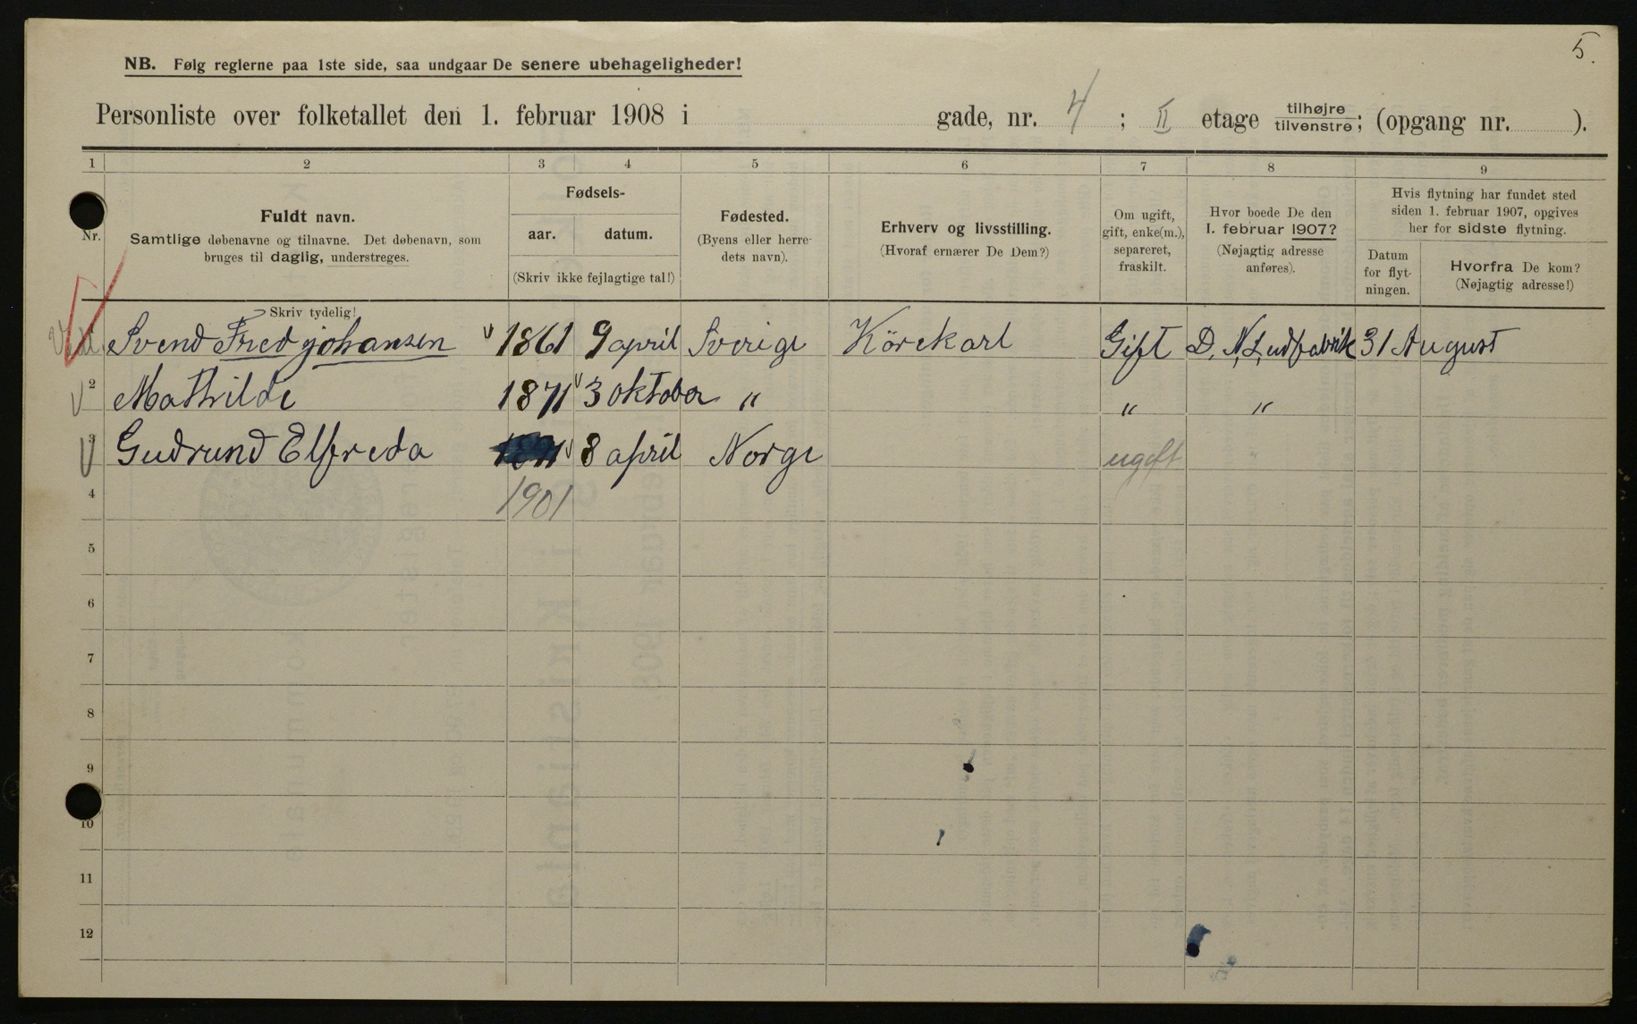 5.
NB. Følg reglerne paa 1ste side, saa undgaar De senere ubehageligheder!
Personliste over folketallet den 1. februar 1908 i gade, nr. 4 ; II etage tilhøjre tilvenstre; (opgang nr. ).
1 2 3 4 5 6 7 8 9
Nr.
Fuldt navn.
Samtlige døbenavne og tilnavne. Det døbenavn, som
bruges til daglig, understreges.
Fødsels-
aar. datum.
(Skriv ikke fejlagtige tal!)
Fødested.
(Byens eller herre-
dets navn).
Erhverv og livsstilling.
(Hvoraf ernærer De Dem?)
Om ugift,
gift, enke(m.),
separeret,
fraskilt.
Hvor boede De den
1. februar 1907?
(Nøjagtig adresse
anføres).
Hvis flytning har fundet sted
siden 1. februar 1907, opgives
her for sidste flytning.
Datum
for flyt-
ningen.
Hvorfra De kom?
(Nøjagtig adresse!)
Skriv tydelig!
Svend Fred johansen 1861 9 april Sverige Körekarl Gift D. N. Ludfabrik 31 August
2 Mathilde 1871 3 oktober " " "
3 Gudrund Elfreda 8 april Norge ugift "
4 1901
5
6
7
8
9
10
11
12